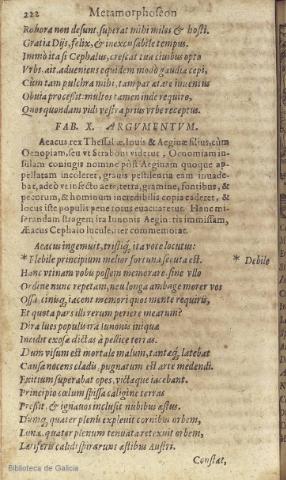 222 Metamorphoseon
Robora non desunt, superat mihi miles & hosti.
Gratia Dijs, felix, & inexcusabile tempus.
Immò ita si Cephalus, crescat tua ciuibus opto
Vrbs, ait, adueniens equidem modò gaudia cepi,
Cùm tam pulchra mihi, tam par ætate iuuentus
Obuia processit: multos tamen inde requiro,
Quos quondam vidi vestra prius vrbe receptus.
FAB. X. ARGVMENTVM.
Aeacus rex Thessaliæ, Iouis & Aeginæ filius, cùm
Oenopiam, seu vt Straboni videtur, Oenoniam in-
sulam coniugis nomine post Aeginam quoque ap-
pellatam incoleret, grauis pestilentia eam inuade-
bat, adeò vt infecto aere, terra, gramine, fontibus, &
pecorum, & hominum incredibilis copia caderet, &
locus iste populis penè totus euacuaretur. Hanc mi-
serandam stragem ira Iunonis Aeginæ immissam,
Æacus Cephalo luculenter commemorat.
Aeacus ingemuit, tristiq́; ita voce locutus:
* Flebile principium melior fortuna secuta est. * Debile
Hanc vtinam vobis possem memorare sine vllo
Ordine nunc repetam, neu longa ambage morer vos
Ossa cinisq́; iacent memori quos mente requiris,
Et quota pars illi rerum periere mearum?
Dira lues populis ira Iunonis iniquæ
Incidit exosæ dictas à pellice terras.
Dum visum est mortale malum, tantæq́; latebat
Causa nocens cladis, pugnatum est arte medendi.
Exitium superabat opes, victaque iacebant.
Principio cœlum spissa caligine terras
Pressit, & ignauos inclusit nubibus æstus.
Dumq́; quater plenū expleuit cornibus orbem,
Luna, quater plenum tenuata retexuit orbem,
Letiferis calidi spirarunt æstibus Austri.
Constat,
Biblioteca de Galicia